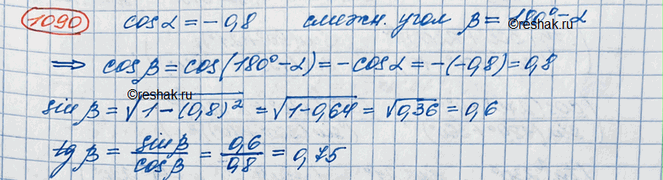 1090 cos α = -0,8 смежн. угол β = 180° - α
⇒ cos β = cos(180° - α) = -cos α = -(-0,8) = 0,8
©reshak.ru
sin β = √(1-(0,8)²) = √(1-0,64) = √0,36 = 0,6
tg β = sin β / cos β = 0,6 / 0,8 = 0,75
©reshak.ru